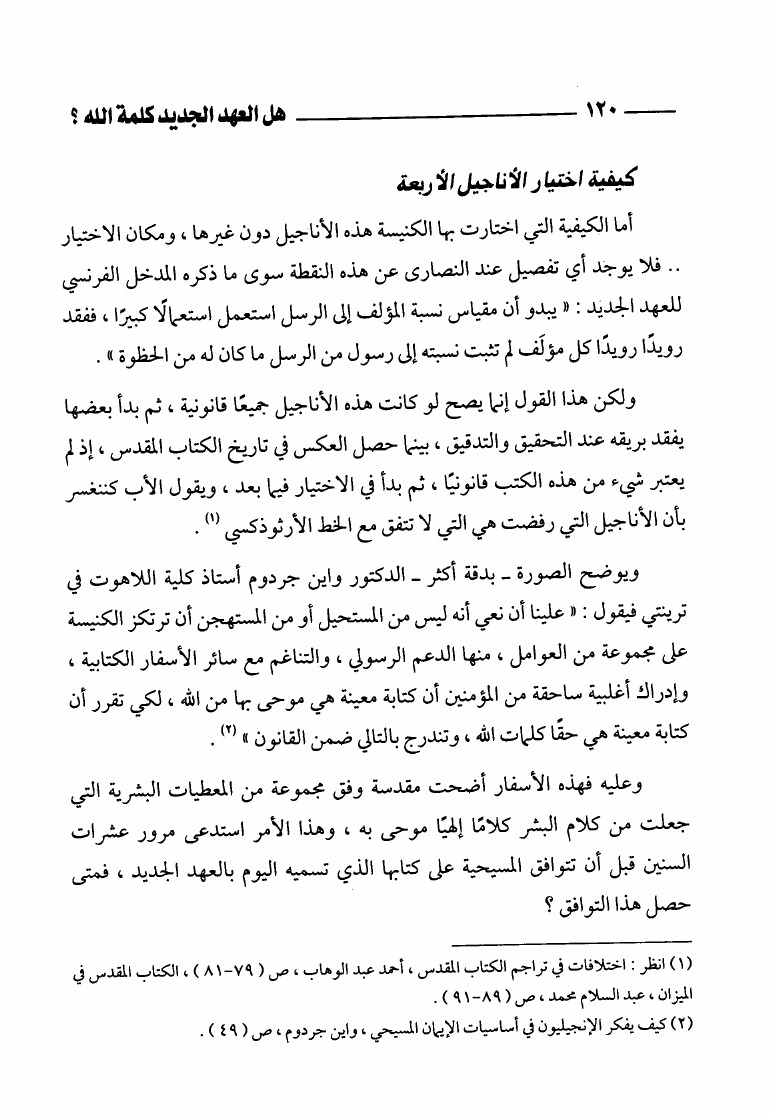 ١٢٠ هل العهد الجديد كلمة الله ؟
كيفية اختيار الأناجيل الأربعة
أما الكيفية التي اختارت بها الكنيسة هذه الأناجيل دون غيرها ، ومكان الاختيار
.. فلا يوجد أي تفصيل عند النصارى عن هذه النقطة سوى ما ذكره المدخل الفرنسي
للعهد الجديد : « يبدو أن مقياس نسبة المؤلف إلى الرسل استعمل استعمالًا كبيرًا ، ففقد
رويدًا رويدًا كل مؤلَف لم تثبت نسبته إلى رسول من الرسل ما كان له من الحظوة » .
ولكن هذا القول إنما يصح لو كانت هذه الأناجيل جميعًا قانونية ، ثم بدأ بعضها
يفقد بريقه عند التحقيق والتدقيق ، بينما حصل العكس في تاريخ الكتاب المقدس ، إذ لم
يعتبر شيء من هذه الكتب قانونيًا ، ثم بدأ في الاختيار فيما بعد ، ويقول الأب كننغسر
بأن الأناجيل التي رفضت هي التي لا تتفق مع الخط الأرثوذكسي (١) .
ويوضح الصورة - بدقة أكثر - الدكتور واين جردوم أستاذ كلية اللاهوت في
ترينتي فيقول : « علينا أن نعي أنه ليس من المستحيل أو من المستهجن أن ترتكز الكنيسة
على مجموعة من العوامل ، منها الدعم الرسولي ، والتناغم مع سائر الأسفار الكتابية ،
وإدراك أغلبية ساحقة من المؤمنين أن كتابة معينة هي موحى بها من الله ، لكي تقرر أن
كتابة معينة هي حقًا كلمات الله ، وتندرج بالتالي ضمن القانون » (٢) .
وعليه فهذه الأسفار أضحت مقدسة وفق مجموعة من المعطيات البشرية التي
جعلت من كلام البشر كلامًا إلهيًا موحى به ، وهذا الأمر استدعى مرور عشرات
السنين قبل أن تتوافق المسيحية على كتابها الذي تسميه اليوم بالعهد الجديد ، فمتى
حصل هذا التوافق ؟
(١) انظر : اختلافات في تراجم الكتاب المقدس ، أحمد عبد الوهاب ، ص ( ٧٩-٨١ ) ، الكتاب المقدس في
الميزان ، عبد السلام محمد ، ص ( ٨٩-٩١ ) .
(٢) كيف يفكر الإنجيليون في أساسيات الإيمان المسيحي ، واين جردوم ، ص ( ٤٩ ) .